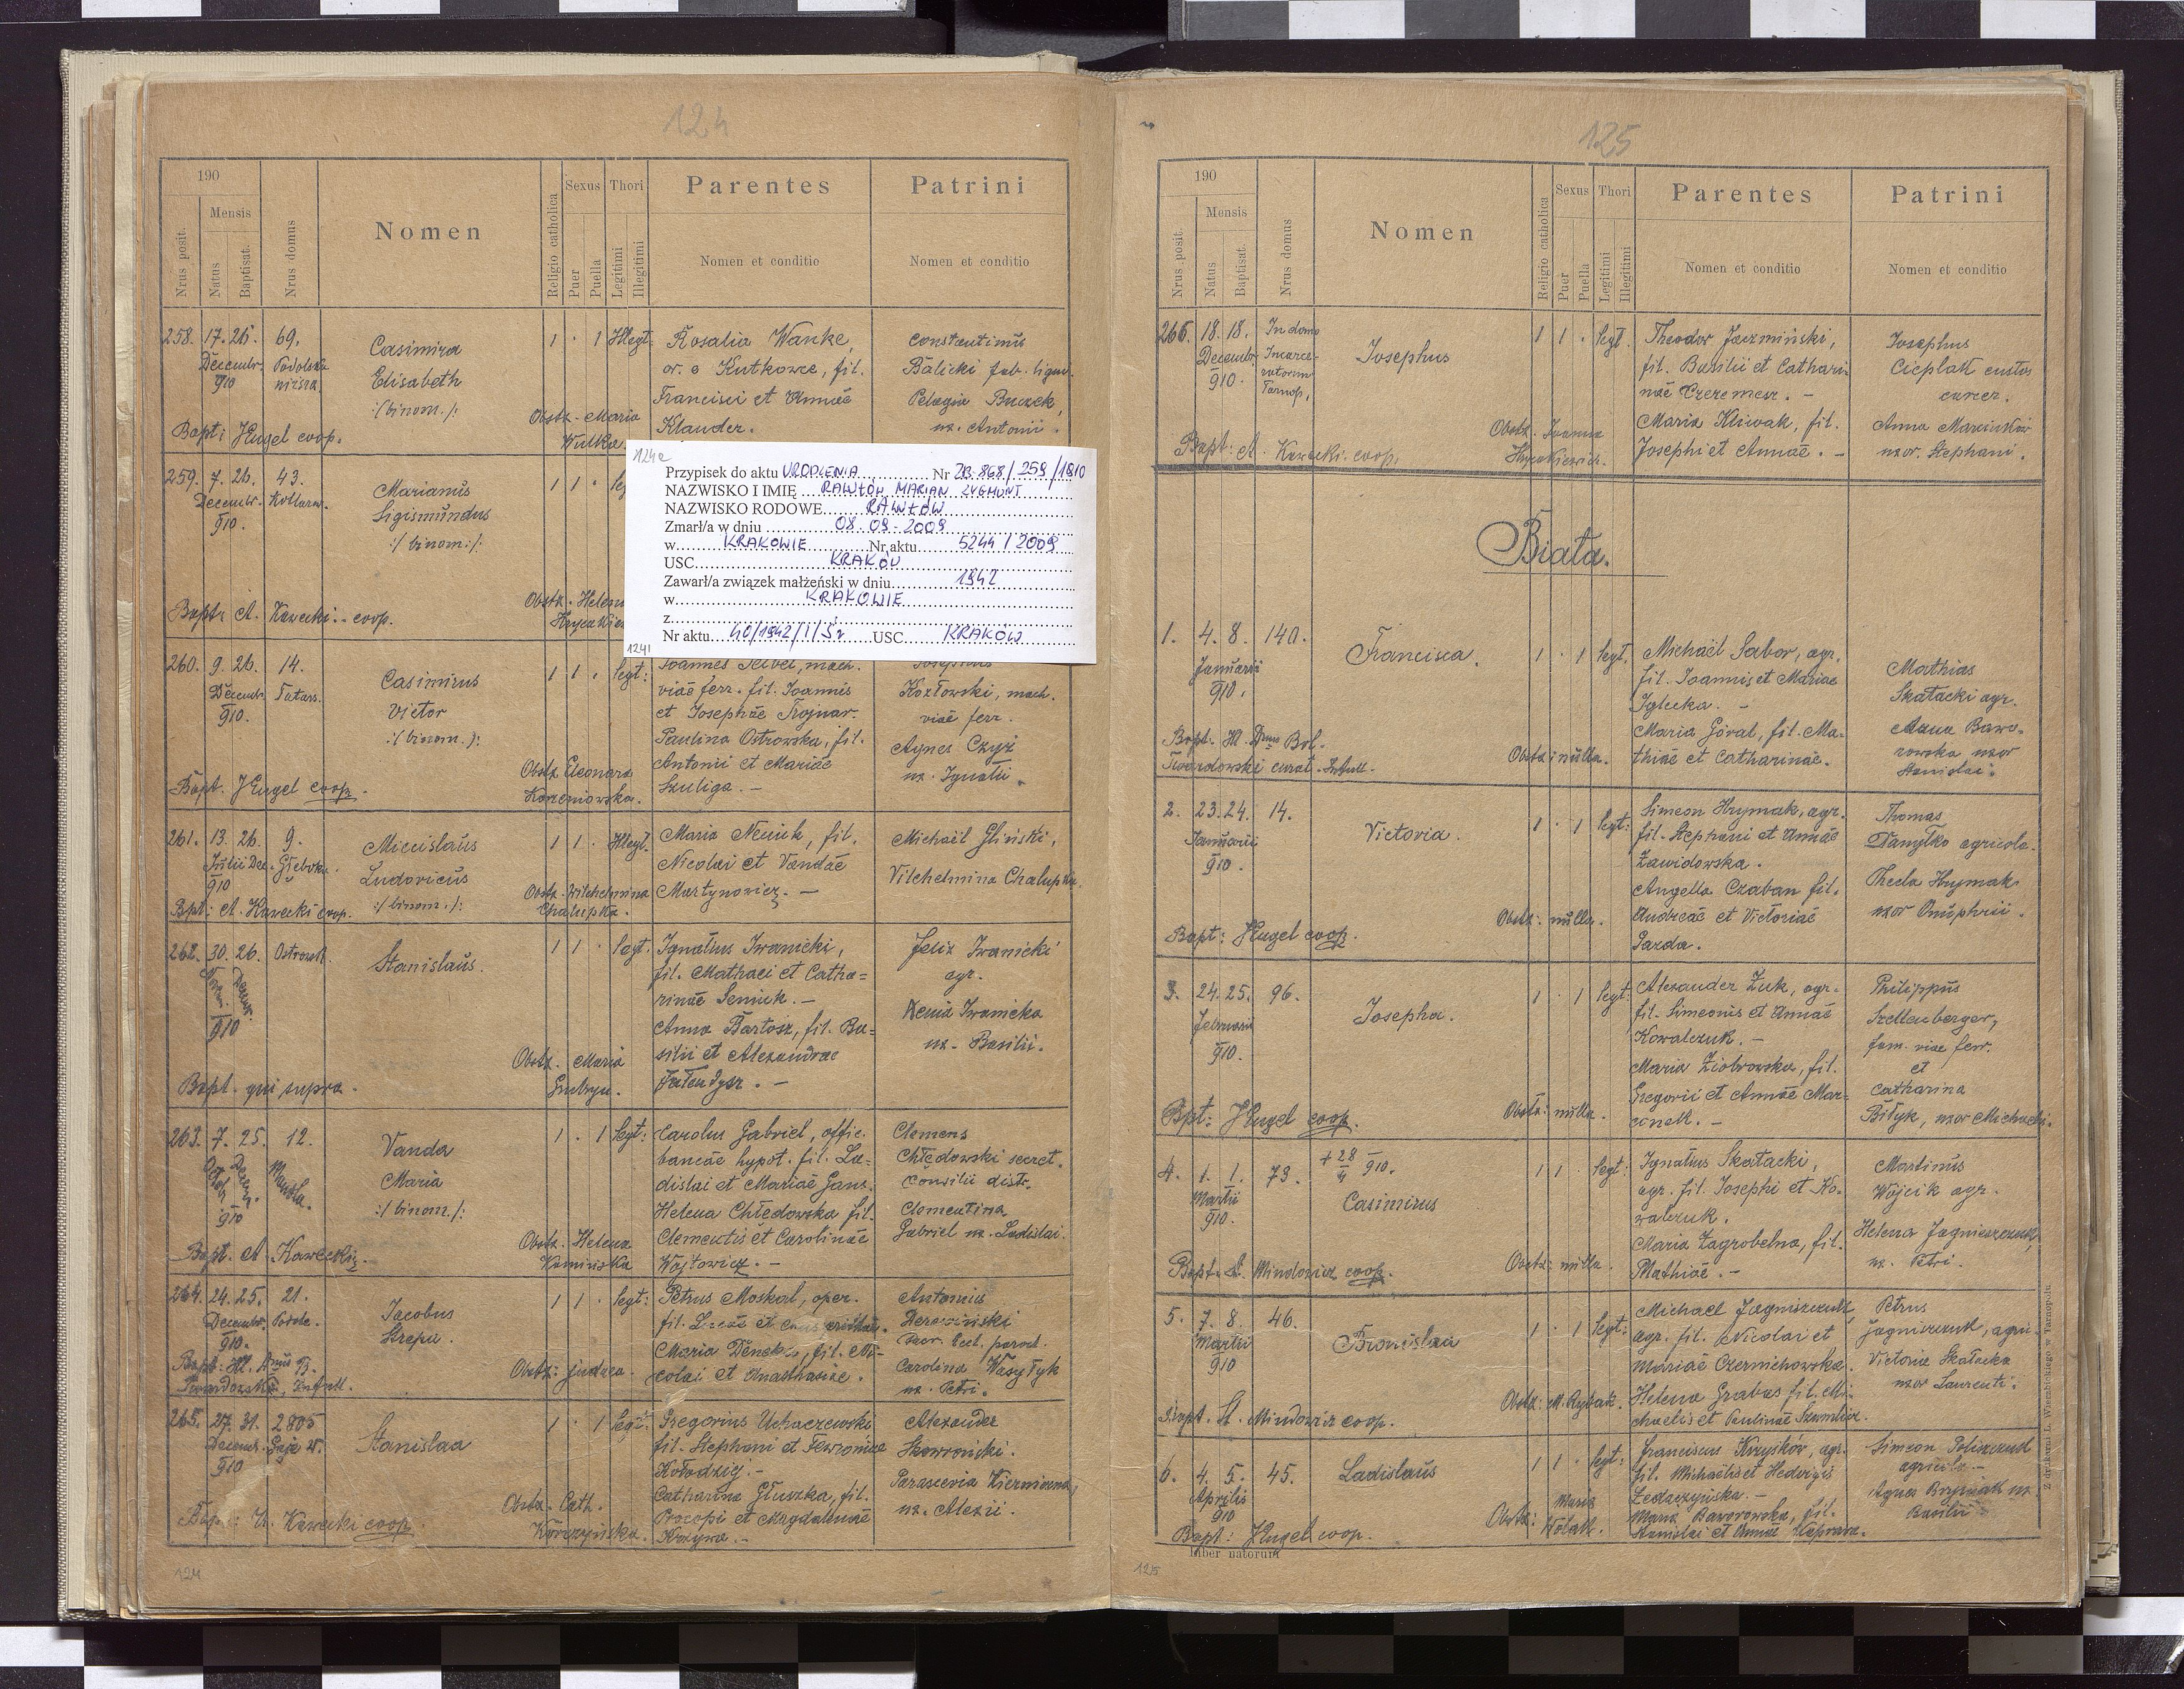 124
190
Nrus posit.
Mensis
Natus
Baptisat.
Nrus domus
Nomen
Religio catholica
Sexus
Puer
Puella
Thori
Legitimi
Illegitimi
Parentes
Nomen et conditio
Patrini
Nomen et conditio
258. 17. 26. 69.
Decembr. Podolska
910 niższa
Casimira
Elisabeth
:/binom./:
1 . 1 Illegt.
Rosalia Wanke,
or. e Kutkowce, fil.
Francisci et Annae
Klauder.
Constantinus
Balicki fab. lign.
Pelagia Buczek,
ux. Antonii.
Obstr. Maria
Wulka
Bapt: JHugel coop.
259. 7. 26. 43.
Decembr.
910.
Marianus
Sigismundus
:/binom:/:
1 1 .
Obstr. Helena
Bapt: A. Kawecki. coop.
124a
Przypisek do aktu URODZENIA Nr ZB. 868/259/1910
NAZWISKO I IMIĘ RAWŁÓW MARIAN ZYGMUNT
NAZWISKO RODOWE RAWŁÓW
Zmarł/a w dniu 08.09.2009
w KRAKOWIE Nr aktu 5244/2009
USC KRAKÓW
Zawarł/a związek małżeński w dniu 1942
w KRAKOWIE
z
Nr aktu 40/1942/I/Śr USC KRAKÓW
260. 9. 26. 14.
Decembr. Tatars.
910.
Casimirus
Victor
:/binom.):
1 1 . legt:
viae ferr. fil. Joannis
et Josephae Trojnar.
Paulina Ostrowska, fil.
Antonii et Mariae
Szuliga. —
Kozłowski, mach.
viae ferr.
Agnes Czyż
ux. Ignatii.
Obstr. Eleonora
Korzeniowska.
Bapt. JHugel coop.
261. 13. 26. 9.
Julii Dec.
910
Miecislaus
Ludovicus
:/binom./:
1 1 . Illegt.
Maria Neuick, fil.
Nicolai et Vandae
Martynowicz. —
Michael Gliński,
Vilhelmina Chalupka.
Obstr. Wilhelmina
Chalupka.
Bpt: A. Kawecki coop.
262. 30. 26.
910
Stanislaus.
1 1 . legt.
Ignatius Iwanicki,
fil. Mathaei et Catha=
rinae Seniuk. —
Anna Bartosz, fil. Ba=
silii et Alexandrae
Felix Iwanicki
agr.
Xenia Iwanicka
ux. Basilii.
Obstr. Maria
Bapt. qui supra.
263. 7. 25. 12.
910
Vanda
Maria
:/binom./:
1 . 1 legt:
Carolus Gabriel, offic.
bancae hypot. fil. La=
dislai et Mariae Gans.
Helena Chłędowska fil.
Clementis et Carolinae
Wojtowicz. —
Clemens
Chłędowski secret.
Consilii distr.
Clementina
Gabriel ux. Ladislai.
Obstr. Helena
Kaminska
Bapt. A. Kawecki.
264. 24. 25. 21.
Decembr.
910.
Jacobus
Strepa.
1 1 . legt:
Petrus Moskal, oper.
Maria Denek, fil. Ni=
colai et Anasthasiae.
Antonius
Carolina Wasyłyk
ux. Petri.
Obstr: judaea.
Twardowski, Infull.
265. 27. 31. 2805
Decemb. Gaje
910
Stanislaa
1 . 1 legt:
Gregorius Uhaczewski
fil. Stephani et Fewroniae
Kołodziej. —
Catharina Głuszka, fil.
Procopi et Magdalenae
Alexander
Skowronicki.
Parascevia
ux. Alexii.
Obstr. Cath.
Korczyńska.
Kawecki coop.
124
125
190
Nrus posit.
Mensis
Natus
Baptisat.
Nrus domus
Nomen
Religio catholica
Sexus
Puer
Puella
Thori
Legitimi
Illegitimi
Parentes
Nomen et conditio
Patrini
Nomen et conditio
266. 18. 18. In domo
Decembr. Incarce-
910. ratorum
Tarnop.
Josephus
1 1 . legt.
Theodor Jaczmiński,
fil. Basilii et Cathari-
nae Czeremesz. —
Maria Kliwak, fil.
Josephi et Annae. —
Josephus
Cieplak custos
carcer.
Anna Marciników
uxor. Stephani.
Obstr. Joanna
Hrycakiewicz.
Bapt: A. Kawecki coop.
Biała.
1. 4. 8. 140.
Januarii
910.
Francisca.
1 . 1 legt.
Michael Sabor, agr.
fil. Joannis et Mariae
Iglecka. —
Maria Góral, fil. Ma-
thiae et Catharinae.
Mathias
Skałacki agr.
Anna Bawo-
rowska uxor
Stanislai.
Obstr: nulla.
Twardowski curat. Infull.
2. 23. 24. 14.
Januarii
910.
Victoria.
1 . 1 legt:
Simeon Hrymak, agr.
fil. Stephani et Annae
Zawidowska.
Angella Czaban fil.
Andreae et Victoriae
Parda.
Thomas
Danyłko agricola.
Thecla Hrymak
uxor Onuphrii.
Obstr: nulla.
Bapt: JHugel coop.
3. 24. 25. 96.
Februarii
910.
Josepha.
1 . 1 legt:
Alexander Żuk, agr.
fil. Simeonis et Annae
Kowalczuk. —
Maria Ziobrowska, fil.
Gregorii et Annae Mar-
cinek. —
Philippus
Szellenberger,
fam. viae ferr.
et
Catharina
Biłyk, uxor Michaelis.
Obstr: nulla.
Bpt: JHugel coop.
4. 1. 1. 73.
Martii
910.
+ 28/4 910.
Casimirus
1 1 . legt:
Ignatius Skałacki,
agr. fil. Josephi et Ko-
walczuk.
Maria Zagrobelna, fil.
Mathiae. —
Martinus
Wojcik agr.
Helena Jagnieszczuk,
ux. Petri.
Obstr: nulla.
Bapt. A. Mindowicz coop.
5. 7. 8. 46.
Martii
910
Bronislaa
1 . 1 legt:
Michael Jagniszczuk,
agr. fil. Nicolai et
Mariae Czernichowska.
Helena Grabas fil. Mi-
chaelis et Paulinae
Petrus
Jagniszczuk, agri-
Victoria Skałacka
uxor Laurenti.
Obstr: M. Rybak.
Bapt. A. Mindowicz coop.
6. 4. 5. 45.
Aprilis
910
Ladislaus
1 1 . legt:
Franciscus Kryśków, agr.
fil. Michaelis et Hedvigis
Maria Baworowska, fil.
Stanislai et Annae
Simeon
agricola —
Agnes Bryniak ux.
Basilii
Obstr: Maria
Wolak.
Bapt: JHugel coop.
Liber natorum
Z drukarni L. Wierzbickiego w Tarnopolu.
125